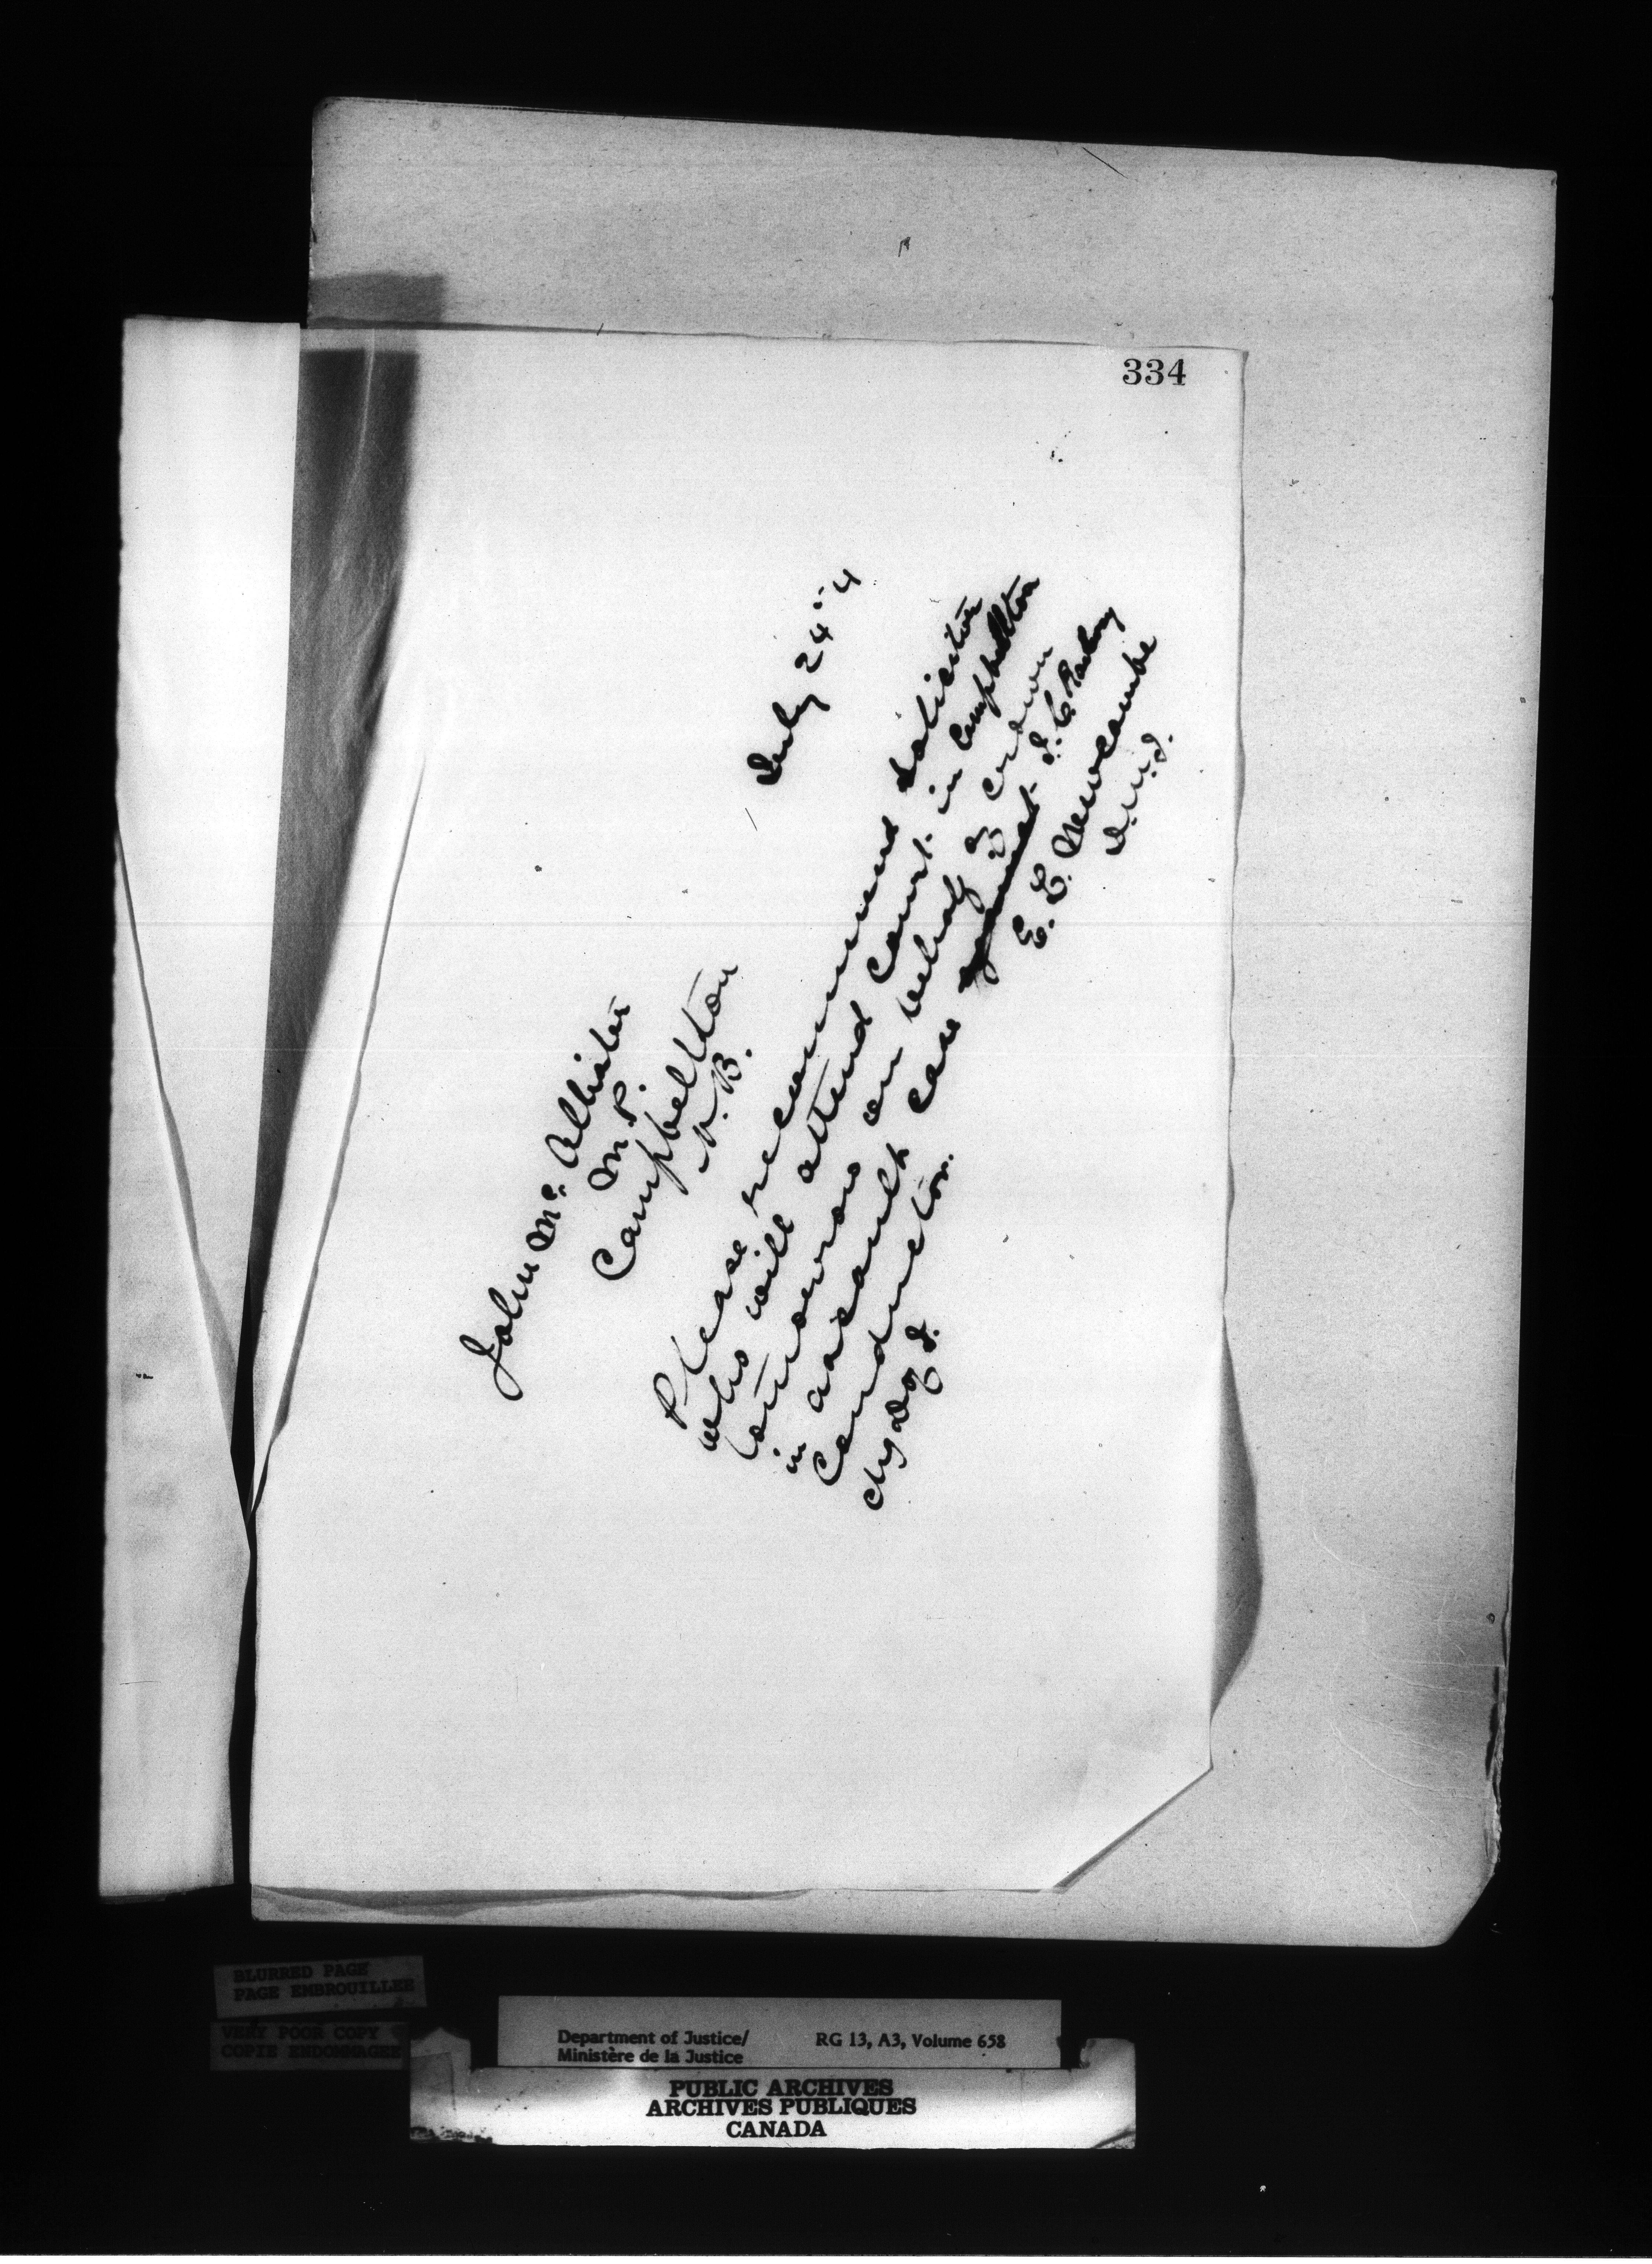 334
July 24" 4
John Mc Allister
M.P.
Campbellton
N.B.
Please recommend solicitor
who will attend court in Campbellton
tomorrow on behalf of crown
in assault case against I. C. Railway
Conductor.
E. L. Newcombe
D.M.J.
chg D of J.
BLURRED PAGE
PAGE EMBROUILLEE
VERY POOR COPY
COPIE ENDOMMAGEE
Department of Justice/ RG 13, A3, Volume 658
Ministère de la Justice
PUBLIC ARCHIVES
ARCHIVES PUBLIQUES
CANADA